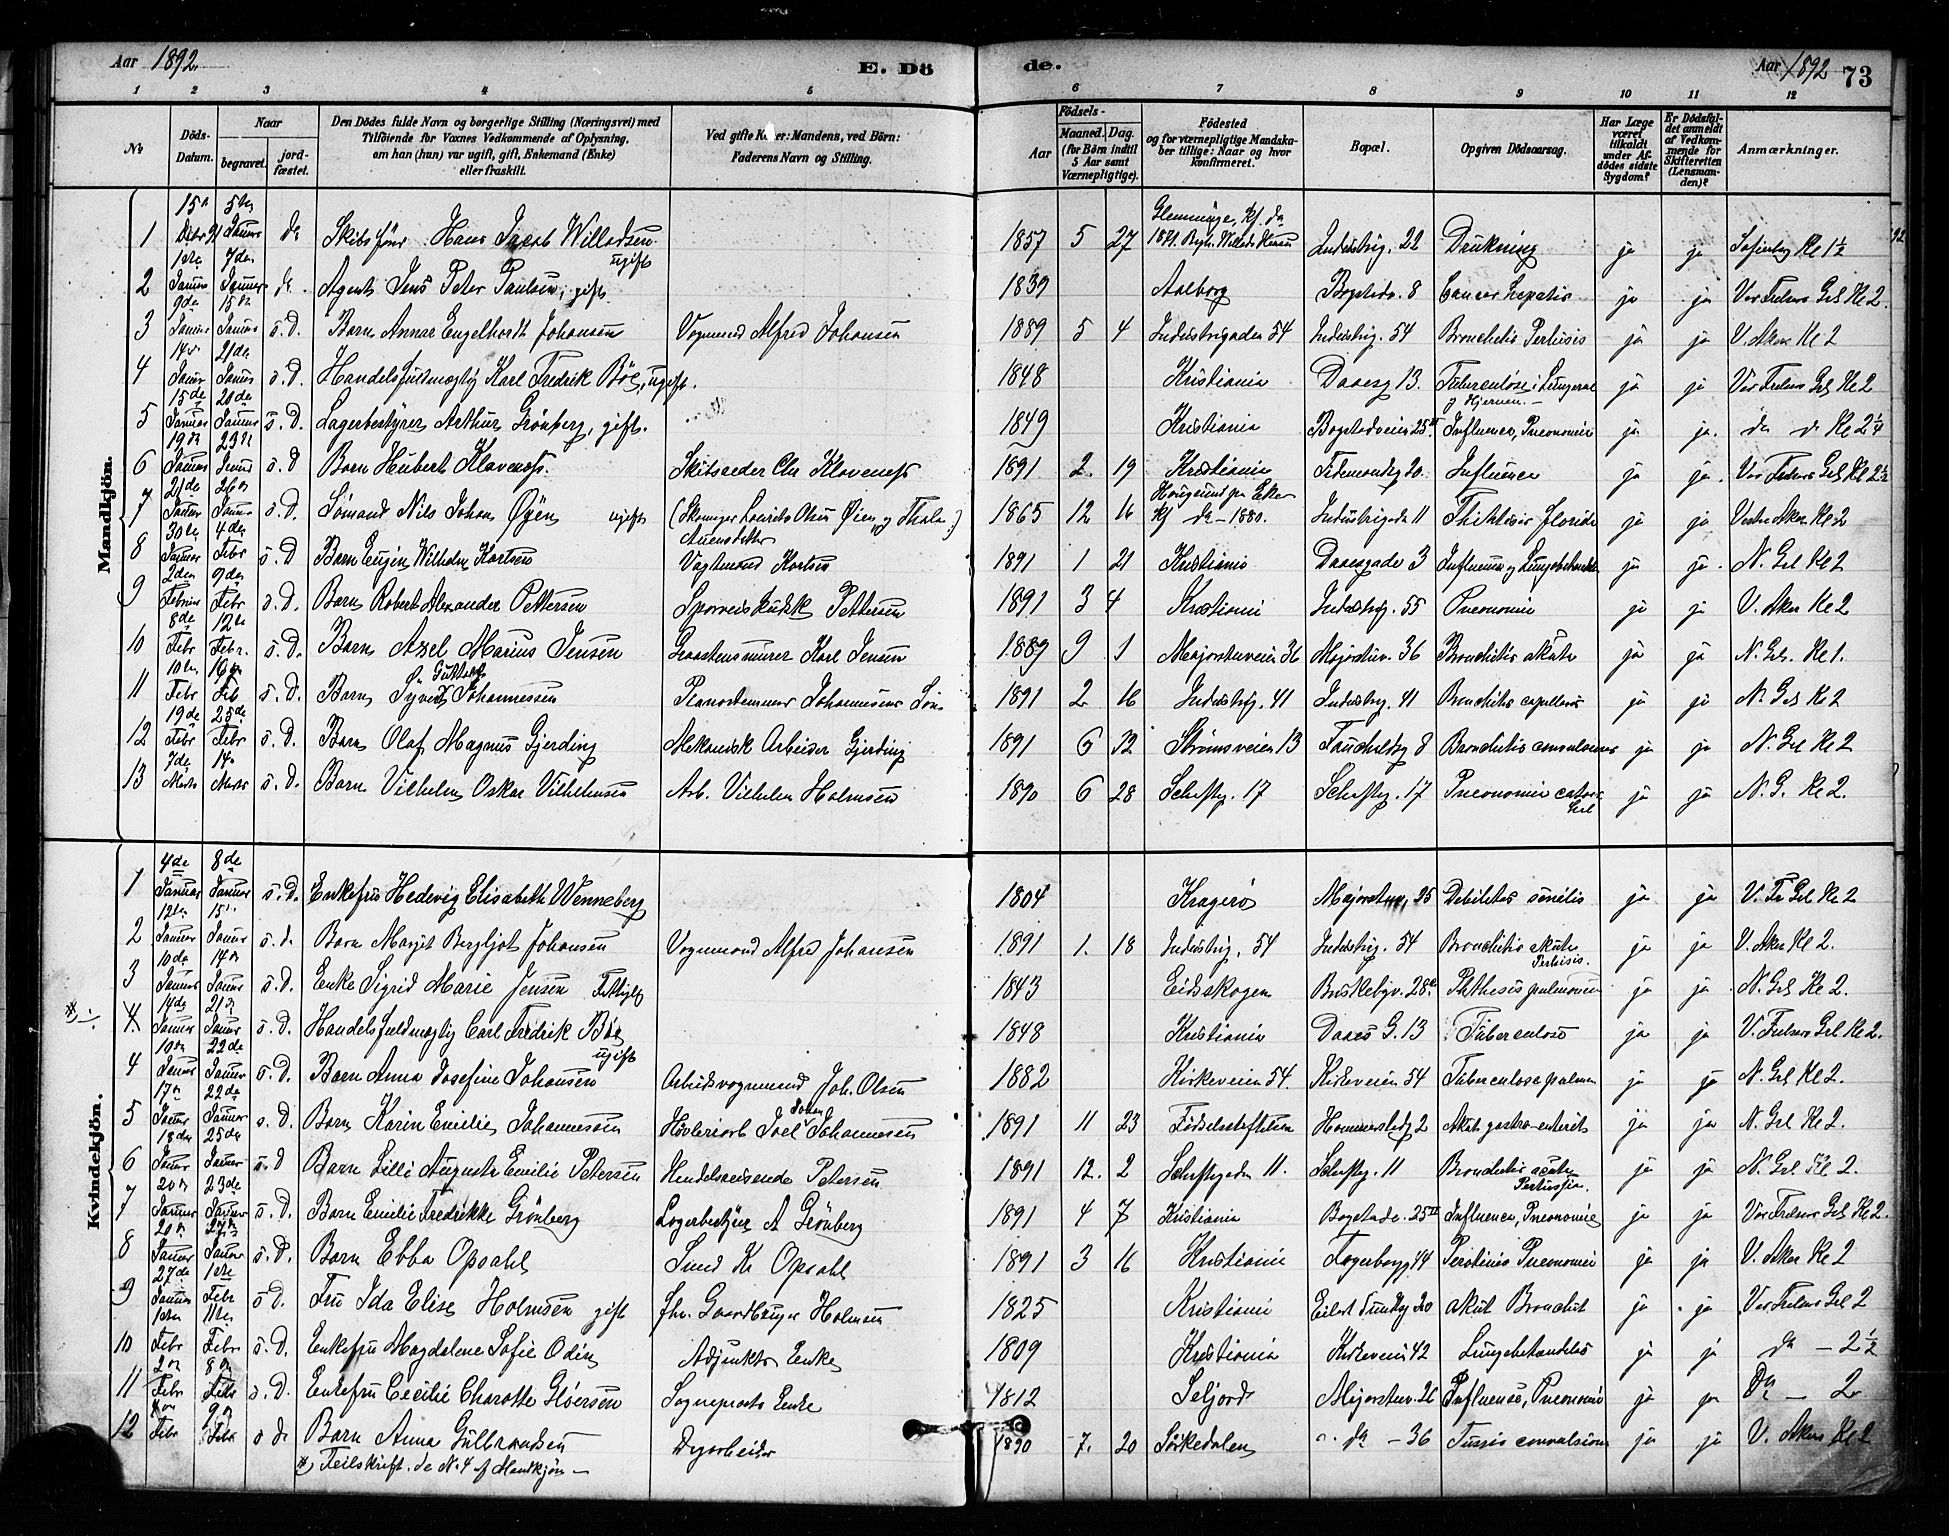 Aar 1892.
E. Dö
de.
Aar 1892 73
1 2 3 4 5 6 7 8 9 10 11 12
No
Döds-Datum.
Naar
begravet.
jord-fæstet.
Den Dödes fulde Navn og borgerlige Stilling (Næringsvei) med Tilföiende for Voxnes Vedkommende af Oplysning, om han (hun) var ugift, gift, Enkemand (Enke) eller fraskilt.
Ved gifte Koner: Mandens, ved Börn: Faderens Navn og Stilling.
Födsels-
Aar
Maaned. Dag.
(for Börn indtil 5 Aar samt Værnepligtige).
Födested og for værnepligtige Mandskaber tillige: Naar og hvor konfirmeret.
Bopæl.
Opgiven Dödsaarsag.
Har Læge været tilkaldt under Afdödes sidste Sygdom?
Er Dödsfaldet anmeldt af Vedkommende for Skifteretten (Lensmanden)?
Anmærkninger.
Mandkjön.
1 15 Decbr 91 5te Januar da Skibsförer Hans Jacob Willadsen ugift 1857 5 27 Glemminge, Kf. da Industrig. 22 Drukning ja ja Sofienberg Kl 1½
2 1ste Januar 7de Januar d. Agent Jens Peter Paulsen, gift. 1839 Aalborg Bogstadv. 8 Cancer hepatis ja ja Vor Frelsers Grl Kl 2
3 9de Januar 15de Januar s. D. Barn Annar Engelhardt Johansen Vognmand Alfred Johansen 1889 5 4 Industrigaden 54 Industrig. 54 Bronchitis Pertusis ja ja V. Aker Kl 2
4 14de Januar 21de Januar s. D. Handelsfuldmægtig Karl Fredrik Böe, ugift. 1848 Kristiania Daaesg 13. Tuberculose i Lungerne og Hjernen. ja ja Vor Frelsers Grl Kl 2
5 15de Januar 20de Januar s. D. Lagerbestyrer Arthur Grönberg, gift. 1849 Kristiania Bogstadveien 25 II Influenza, Pneumonie ja ja. da d Kl 2¼
6 19de Januar 23de Januar s. D Barn Hubert Klaveness. Skibsreder Chr Klaveness 1891 2. 19 Kristiania 20. Influenza ja ja. Vor Frelsers Grl Kl 2½
7 21de Januar 26de Januar s. D. Sömand Nils Johan Öyen ugift 1865 12 16 Hougsund pr Eker Kf da - 1880. Industrigade 11 Phthisis florida ja ja Vestre Aker Kl 2
8 30te Januar 4de Febr s. D Barn Eugen Wilhelm Kortsen Vagtmand Kortsen 1891 1 21 Kristiania Daaesgade 3 Influenza og Lungebetændelse ja ja. N. Grl Kl 2
9 2den Februar 9de Febr s. D. Barn Robert Alexander Pettersen Sporveiskudsk Pettersen 1891 3 4 Kristiania Industrig. 55 Pneumonie ja ja V. Aker Kl 2
10 8de Febr 12te Febr. s. D. Barn Axel Marius Jensen Graastensmurer Karl Jensen 1889 9 1 Majorstuveien 36 Majorstuv. 36 Bronchitis akuta ja ja N. Grl. Kl 1.
11 10de Febr 16de Feb s. D. Barn Syvert Johannessen Pianostemmer Johannesen 1891 2 16 Industrig. 41 Industrig. 41 Bronchitis capillaris ja ja N. Grl Kl 2
12 19de Febr 25de Febr s. D. Barn Olaf Magnus Gjerding Mekanisk Arbeider Gjerding 1891 6 12 Strömsveien 13 8 Bronchitis ja ja N. Grl Kl 2
13 7de Marts 14 Marts s. D. Barn Vilhelm Oskar Vilhelmsen Arb. Vilhelm Holmsen 1890 6 28 Schultzg. 17 Schultzg. 17 Pneumonie ja ja N. G. Kl 2.
Kvindekjön.
1 4de Januar 8de Januar s. D. Enkefru Hedevig Elisabeth Wenneberg 1804 Kragerö Majorstuv. 25 Debilitas senilis ja ja V. Fr Grl Kl 2
2 12te Januar 15 Januar s. d. Barn Margit Bergljot Johansen Vognmand Alfred Johansen 1891 1. 18 Industrig. 54 Industrig. 54 Bronchitis akuta Pertusis. ja ja V. Aker Kl 2.
3 10de Januar 14de Januar s. D. Enke Sigrid Marie Jensen Fattiglem 1843 Eidsskogen Briskebyv. 28 Phthisis pulmonum ja ja N. Grl Kl 2.
4 14de Januar 21de Januar s. D. Handelsfuldmægtig Carl Fredrik Böe ugift 1848 Kristiania Daaes G. 13 Tuberculose ja ja V. Frelsers Grl Kl 2.
4 10de Januar 22de Januar s. D. Barn Anna Josefine Johansen Arbeidsvognmand Joh. Olsen 1882 Kirkeveien 54. Kirkeveien 54 Tuberculose pulmon ja ja N. Grl Kl 2.
5 17de Januar 22de Januar s. D. Barn Karin Emilie Johannessen Hövleriarb Joel Johan Johannesen 1891 11 23 Födselsstiftelsen Hammerstadg 2 Akut gastro-enterit ja ja N. Grl Kl 2.
6 18de Januar 25de Januar s. D Barn Lilli Augusta Emilie Petersen Handelsreisende Petersen 1891 12. 2 Schultzgaden 11. Schultzg. 11 Bronchitis acuta Pertussis. ja ja N. Grl Kl 2.
7 20de Januar 23de Januar s. D. Barn Emilie Fredrikke Grönberg Lagerbestyrer A Grönberg 1891 4 7 Kristiania Bogstadv. 25 II Influenza, Pneumonie ja ja Vor Frelsers Grl Kl 2.
8 20de Januar 27de Januar s. D. Barn Ebba Opsahl Smed K Opsahl 1891 3 16 Kristiania Fagerborgg. 44 Pneumonie ja ja V. Aker Kl 2
9 27de Januar 1ste Febr s D. Fru Ida Elise Holmsen gift fhv. Gaardbruger Holmsen 1825 Kristiania Eilert Sundtsg 20 akut Bronchit ja ja Vor Frelsers Grl 2
10 1ste Febr 11te Febr s. D. Enkefru Magdalene Sofie Odén Adjunkts Enke 1809 Kristiania Kirkeveien 42 Lungebetændelse ja ja da - 2½
11 2de Febr 8de Febr s. D. Enkefru Cecilie Charotte Glöersen Sogneprests Enke 1812 Seljord Majorstuv. 26 Influensa, Pneumonie ja ja Da - 2
12 Febr 9de Febr s d. Barn Anna Gulbrandsen Dagarbeider 1890 7. 20 Sörkedalen da - 36 Tussis convulsiva ja ja V. Aker Kl 2
*) Feilskrift. se N. 4 af Mandkjön -